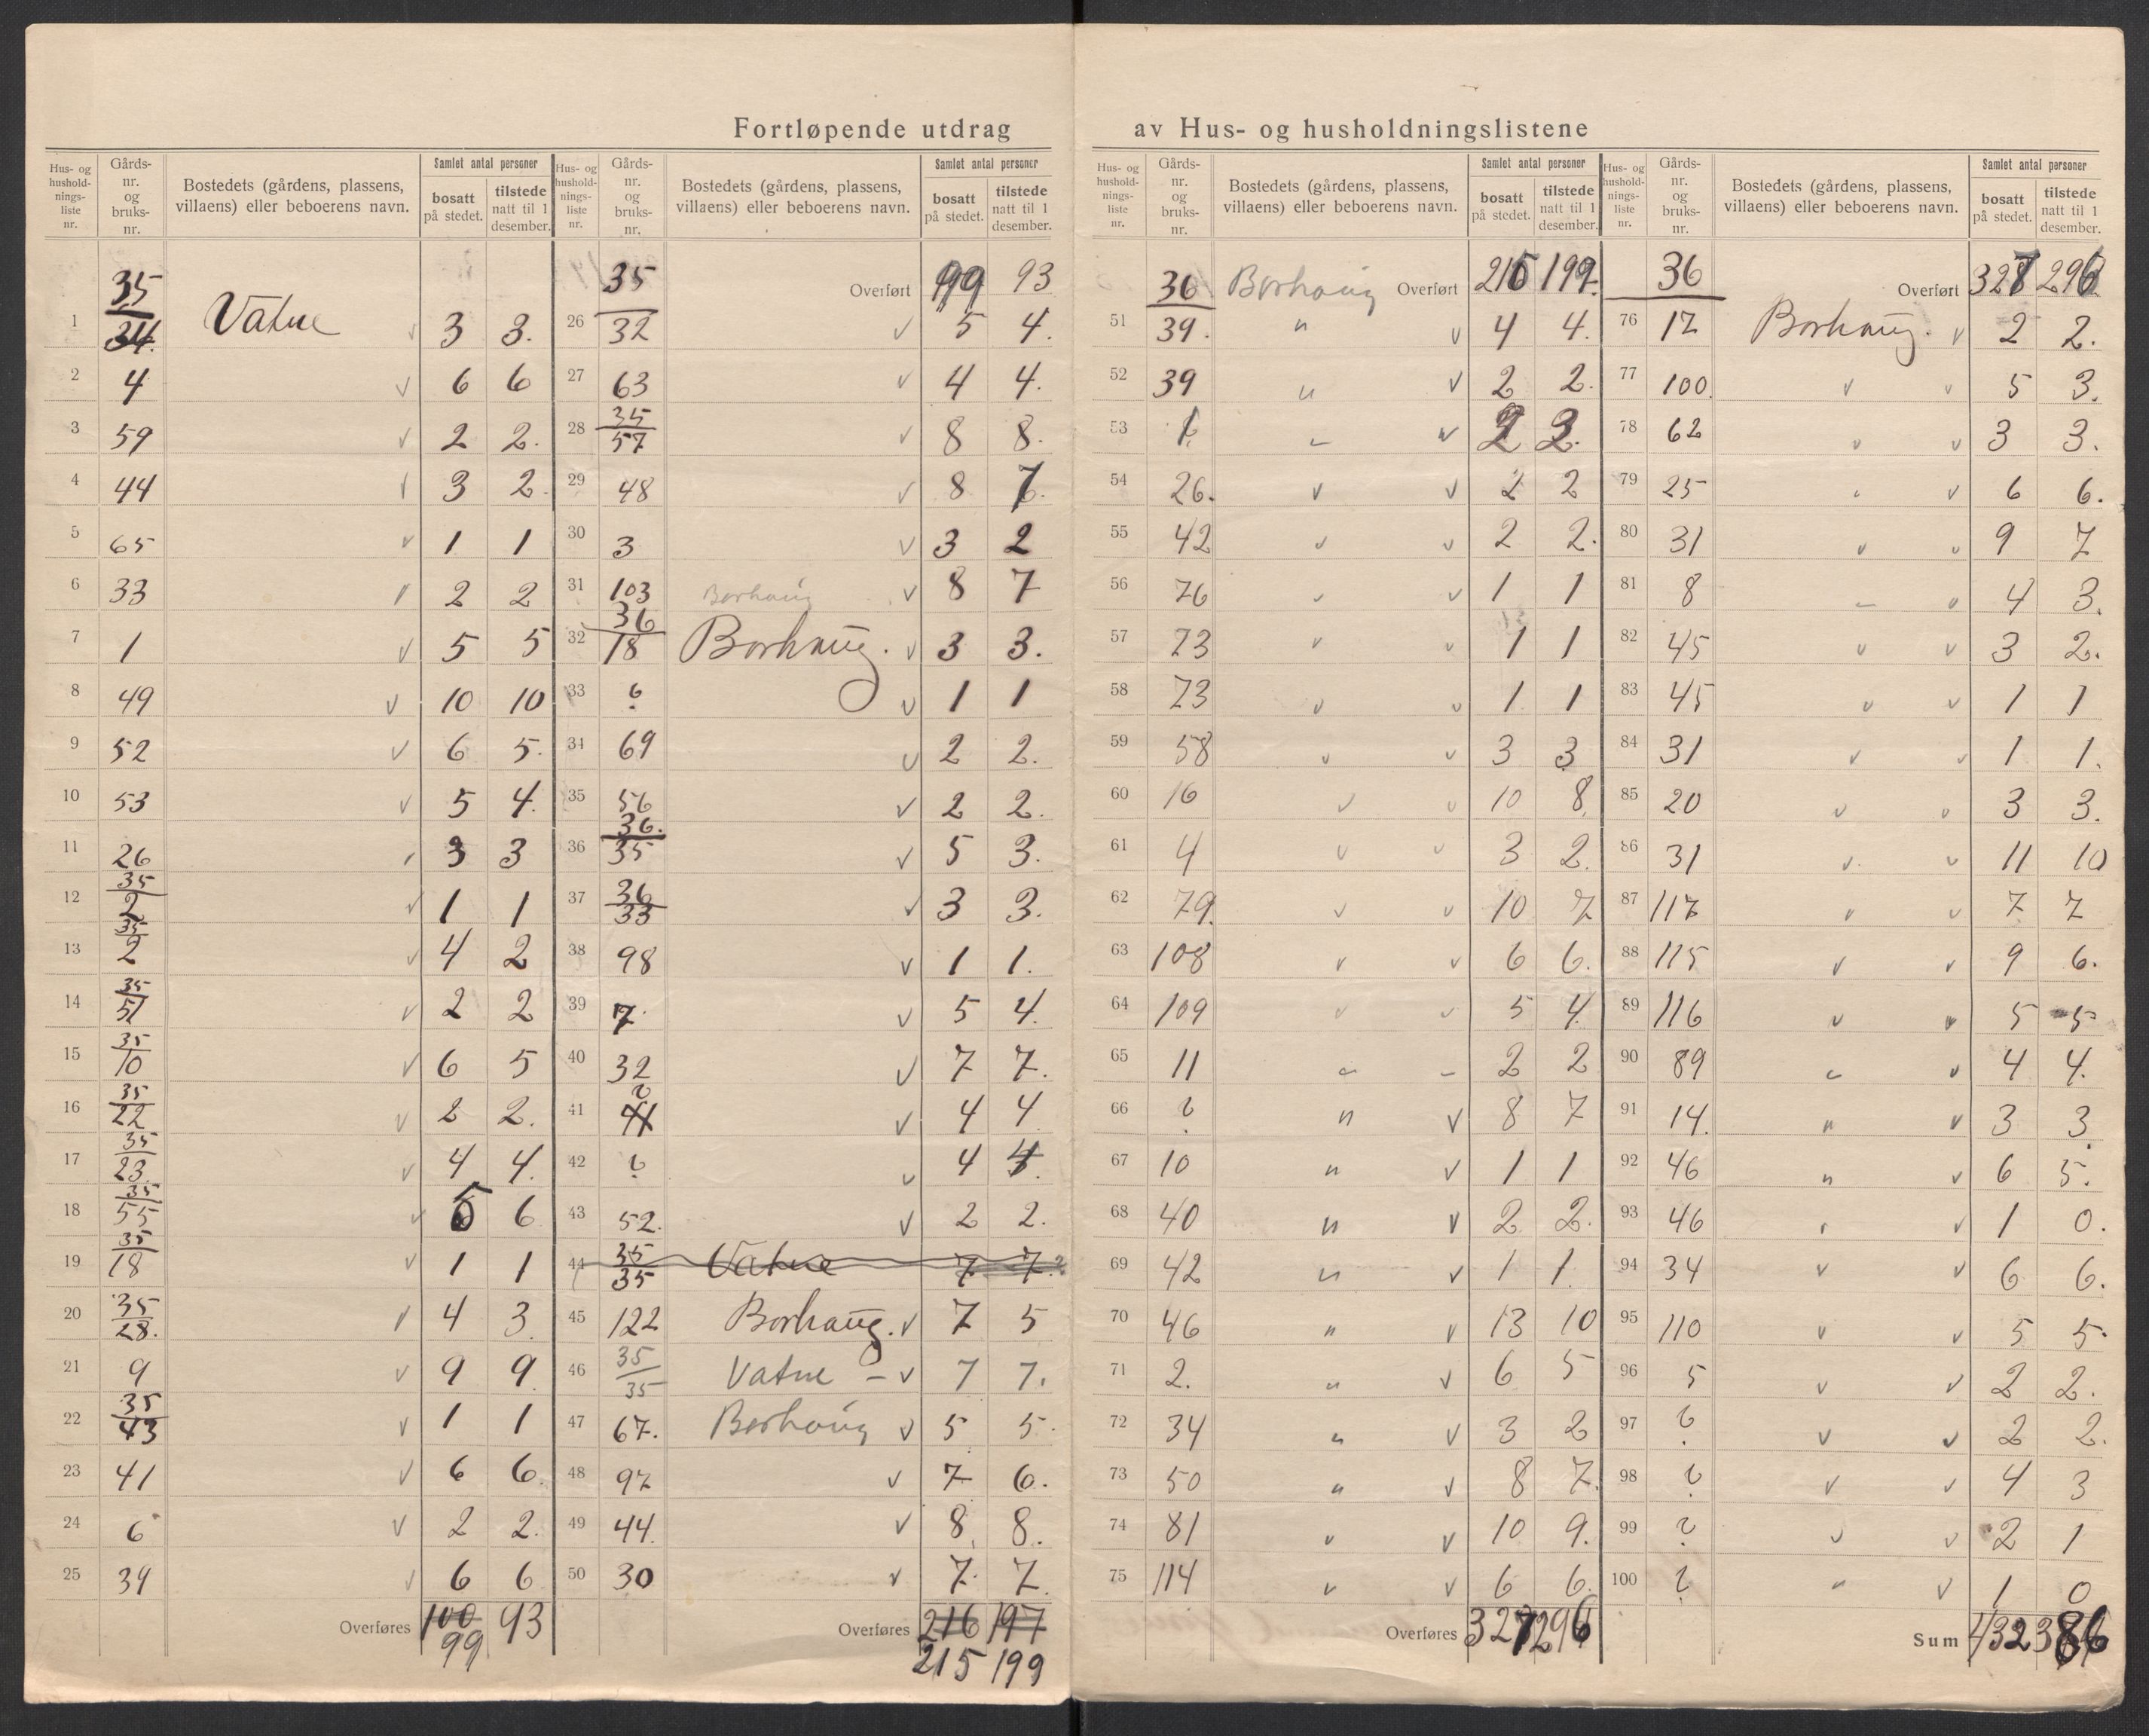 Fortløpende utdrag av Hus- og husholdningslistene
Hus- og husholdnings-liste nr. | Gårds-nr. og bruks-nr. | Bostedets (gårdens, plassens, villaens) eller beboerens navn. | Samlet antal personer bosatt på stedet. | tilstede natt til 1 desember.
35
1 34. Vatne √ 3 3.
2 4 √ 6 6
3 59 √ 2 2.
4 44 √ 3 2.
5 65 √ 1 1
6 33 √ 2 2
7 1 √ 5 5
8 49 √ 10 10
9 52 √ 6 5.
10 53 √ 5 4.
11 26 √ 3 3
12 35/2 √ 1 1
13 35/2 √ 4 2
14 35/51 √ 2 2
15 35/10 √ 6 5
16 35/22 √ 2 2.
17 35/23 √ 4 4.
18 35/55 √ 5 6
19 35/18 √ 1 1
20 35/28. √ 4 3
21 9 √ 9 9.
22 35/43 √ 1 1
23 41 √ 6 6.
24 6 √ 2 2.
25 39 √ 6 6
Overføres 100 93
99
Hus- og husholdnings-liste nr. | Gårds-nr. og bruks-nr. | Bostedets (gårdens, plassens, villaens) eller beboerens navn. | Samlet antal personer bosatt på stedet. | tilstede natt til 1 desember.
35 Overført 99 93
26 32 √ 5 4.
27 63 √ 4 4.
28 35/57 √ 8 8.
29 48 √ 8 7.
30 3 √ 3 2
31 103 Borhaug √ 8 7
32 36/18 Borhaug. √ 3 3.
33 ? √ 1 1
34 69 √ 2 2.
35 56 √ 2 2.
36 36./35 √ 5 3.
37 36/33 √ 3 3.
38 98 √ 1 1.
39 7 √ 5 4.
40 32 √ 7 7.
41 ? 41 √ 4 4
42 ? √ 4 4.
43 52. √ 2 2.
44 35/35 Vatne 7 7.
45 122 Borhaug. √ 7 5
46 35/35 Vatne - √ 7 7.
47 67. Borhaug √ 5 5.
48 97 √ 7 6.
49 44. √ 8 8.
50 30 √ 7 7.
Overføres 216 197
215 199
Hus- og husholdnings-liste nr. | Gårds-nr. og bruks-nr. | Bostedets (gårdens, plassens, villaens) eller beboerens navn. | Samlet antal personer bosatt på stedet. | tilstede natt til 1 desember.
36 Borhaug Overført 215 199.
51 39. " √ 4 4.
52 39 " √ 2 2.
53 " √ 2 2.
54 26. " √ 2 2
55 42 " √ 2 2.
56 76 " √ 1 1
57 73 " √ 1 1
58 73 " √ 1 1
59 58 " √ 3 3
60 16 " √ 10 8.
61 4 " √ 3 2.
62 79. " √ 10 7
63 108 " √ 6 6.
64 109 " √ 5 4.
65 11 " - 2 2
66 ? " √ 8 7
67 10 " √ 1 1
68 40 " √ 2 2.
69 42 " √ 1 1.
70 46 " √ 13 10
71 2. " √ 6 5
72 34 " √ 3 2
73 50 " √ 8 7.
74 81 " √ 10 9.
75 114 " √ 6 6.
Overføres 327 296
Hus- og husholdnings-liste nr. | Gårds-nr. og bruks-nr. | Bostedets (gårdens, plassens, villaens) eller beboerens navn. | Samlet antal personer bosatt på stedet. | tilstede natt til 1 desember.
36 Overført 327 296
76 17 Borhaug. √ 2 2.
77 100. " √ 5 3.
78 62 " √ 3 3.
79 25 " √ 6 6.
80 31 " √ 9 7
81 8 " √ 4 3.
82 45 " √ 3 2.
83 45 " √ 1 1
84 31 " √ 1 1.
85 20 " √ 3 3.
86 31 " √ 11 10
87 117 " √ 7 7
88 115 " √ 9 6.
89 116 " √ 5 5
90 89 " √ 4 4.
91 14. " √ 3 3.
92 46 " √ 6 5.
93 46 " √ 1 0.
94 34 " √ 6 6.
95 110 " √ 5 5.
96 5 " √ 2 2.
97 ? " √ 2 2.
98 ? " √ 4 3
99 ? " √ 2 1
100 ? " √ 1 0
Sum 432 386